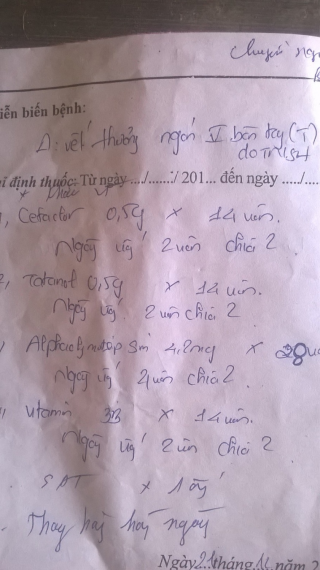 Chuyển
iễn biến bệnh:
Δ: vết thương ngón V bàn tay (T)
do TNSH
ỉ định thuốc: Từ ngày ..../....../ 201... đến ngày ...../....
1, Cefaclor 0,5g x 14 viên.
Ngày uống 2 viên chia 2
2, Tatanol 0,5g x 14 viên.
Ngày uống 2 viên chia 2
Alphachymotrypsin 4,2mg x 28
Ngày uống 4 viên chia 2.
Vitamin 3B x 14 viên.
Ngày uống 2 viên chia 2
SAT x 1 ống
Thay băng hàng ngày
Ngày 21 tháng 11 năm 2